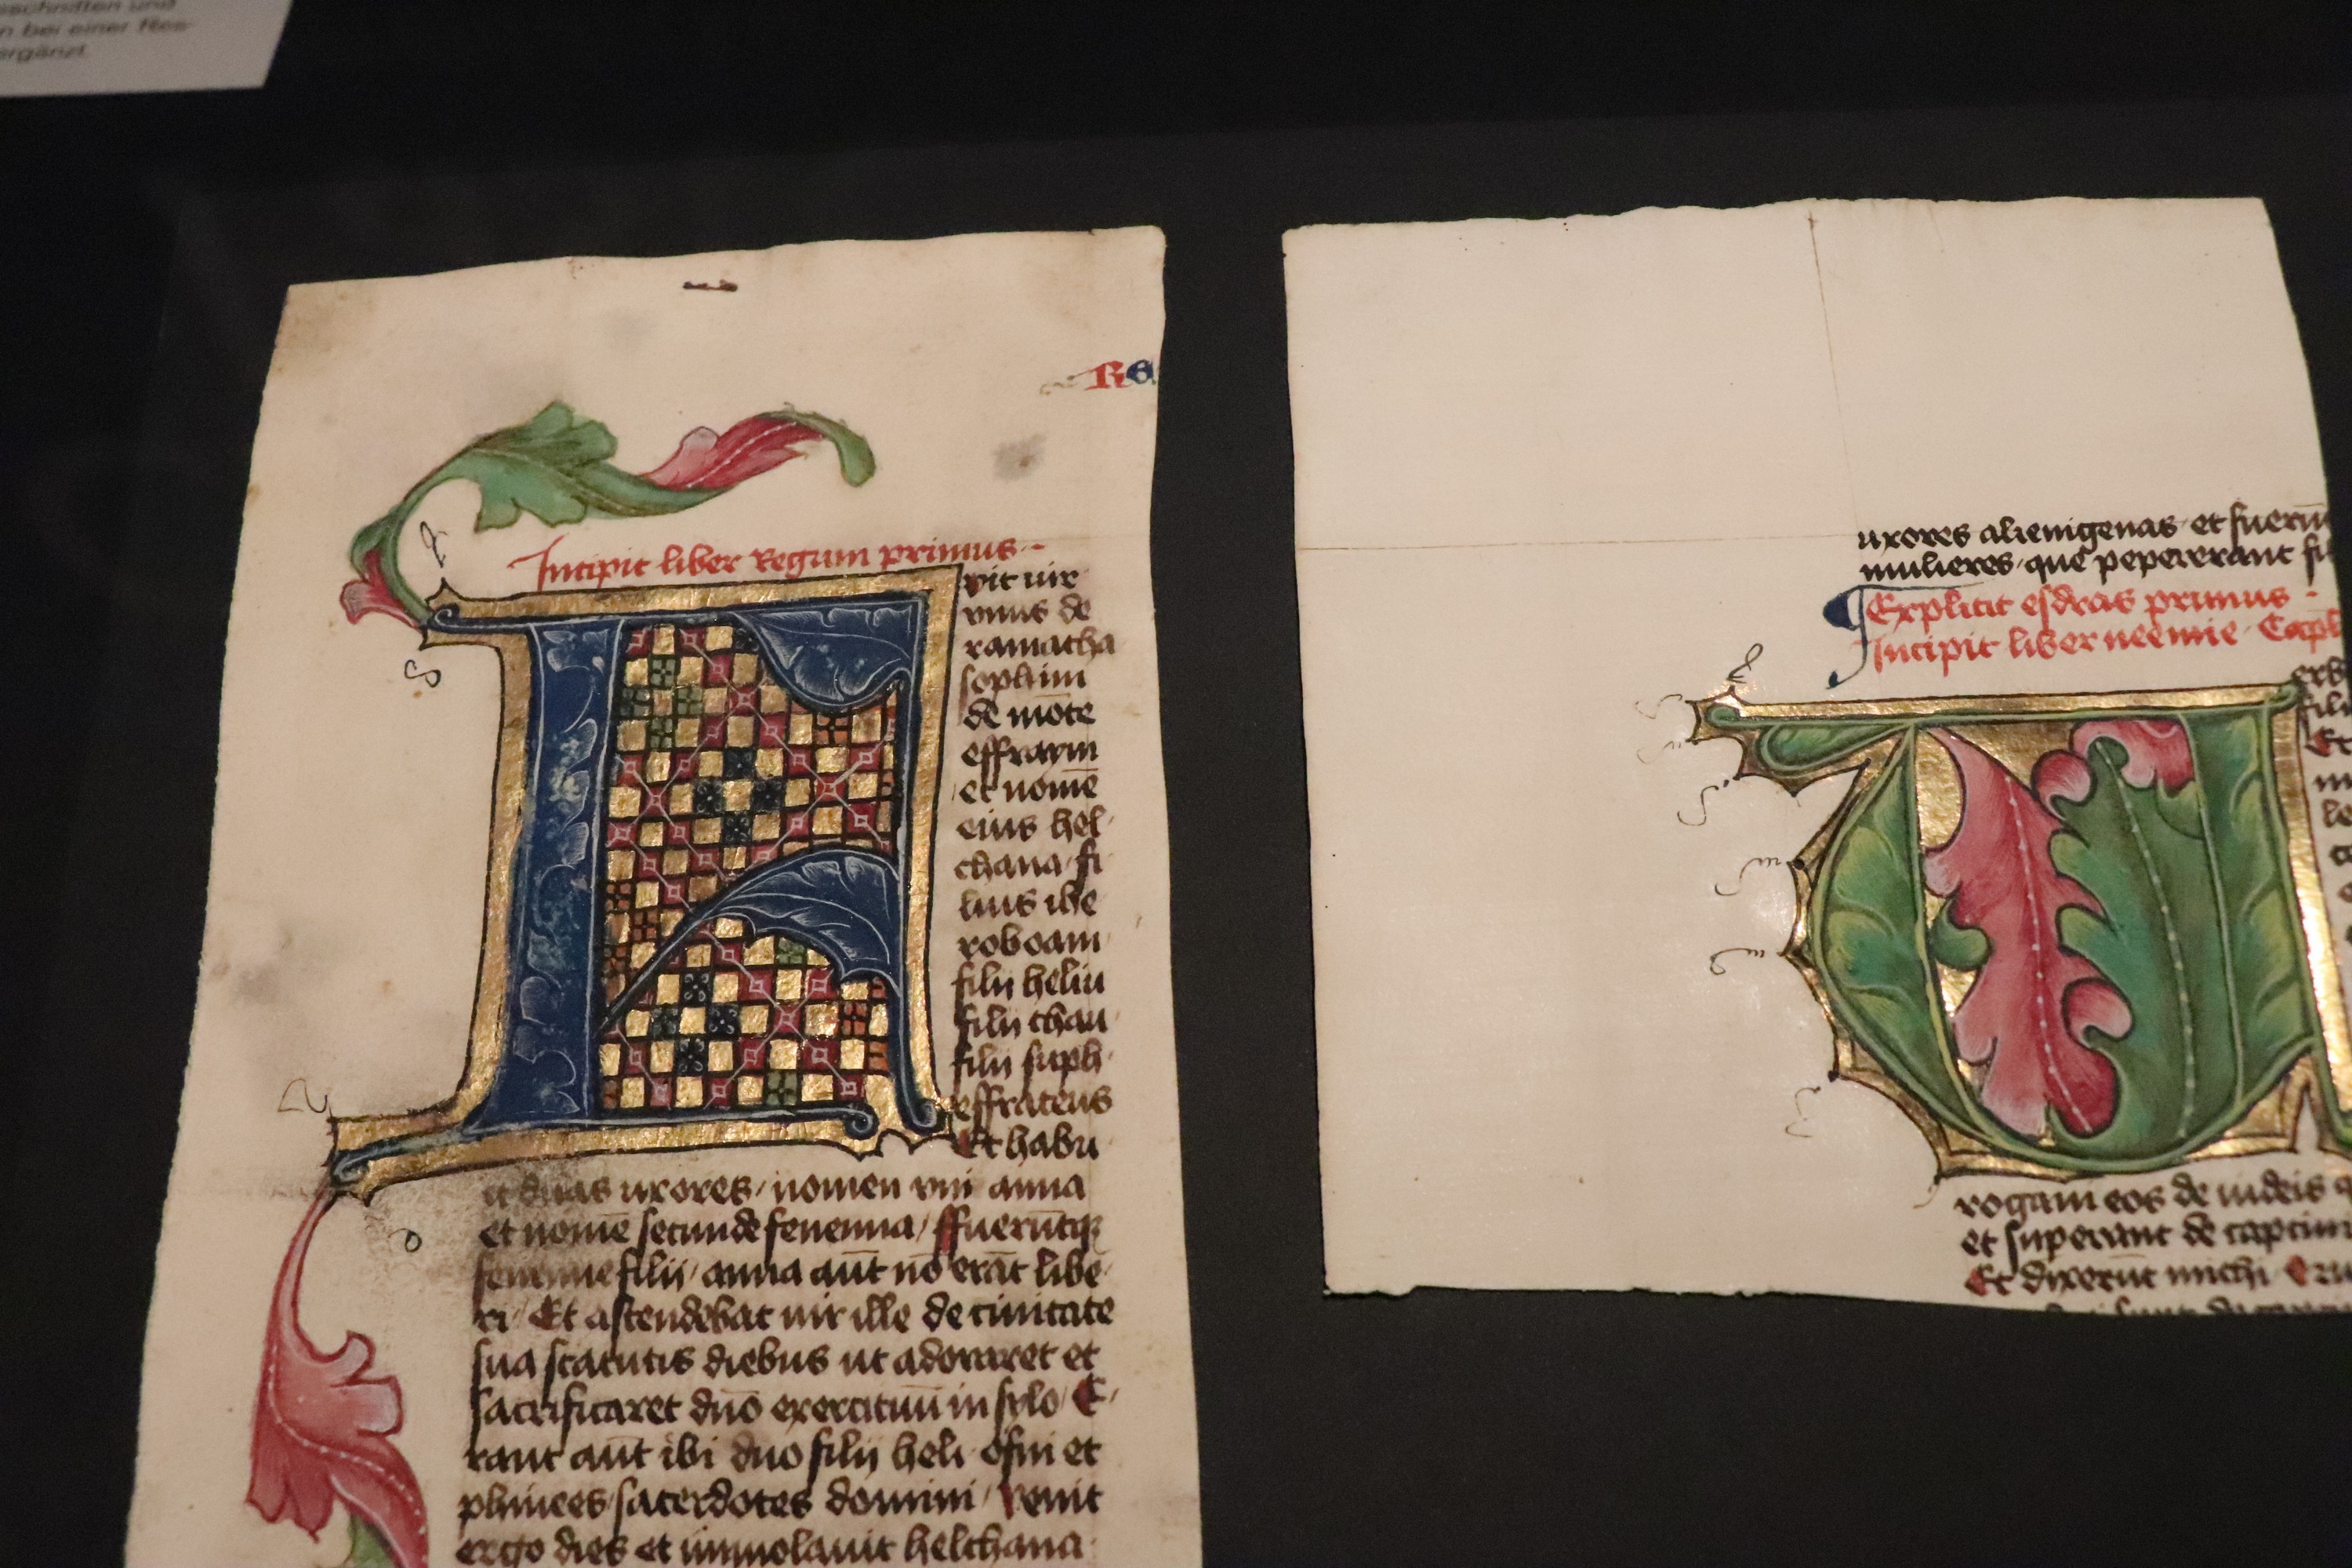 schriften und
n bei einer Res-
ergänzt.
RE
Incipit liber Regum primus
F
vit uir
vnus de
ramatha
sophim
de mōte
effraym
et nomē
eius hel
chana fi
lius ihe
roboam
filii heliu
filii thau
filii suph
effrateus
Et habu
it duas uxores nomen vni anna
et nomē secunde fenenna ffuerūtqz
fenenne filii anna aūt nō erāt libe
ri Et ascendebat uir ille de ciuitate
sua statutis diebus ut adoraret et
sacrificaret dnō exercituū in sylo E
rant aūt ibi duo filii heli ofni et
phinees sacerdotes domini venit
ergo dies et immolauit helchana
uxores alienigenas et fuerūt
mulieres que pepererant fi
Explicit esdras primus
Incipit liber neemie Capl
V
erb
fili
Et
rogaui eos de iudeis
et superant de captiui
Et dixerūt michi